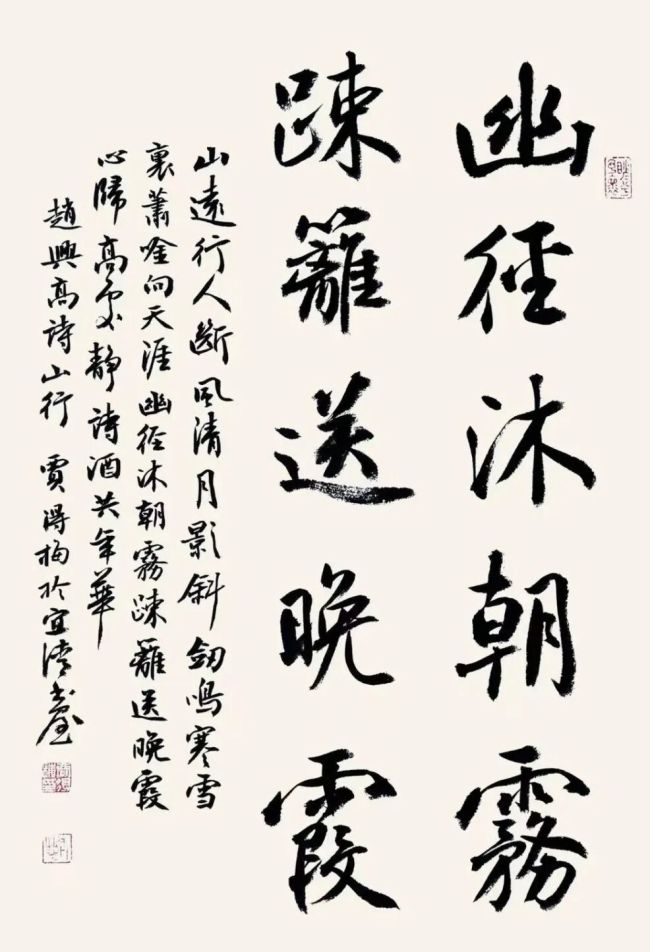 幽徑沐朝霧
踈籬送晚霞
山遠行人斷風清月影斜劒鳴寒雪
裏蕭唫向天涯幽徑沐朝霧踈籬送晚霞
心歸高処静詩酒共年華
趙興高詩山行 賈得梅於宜清書屋